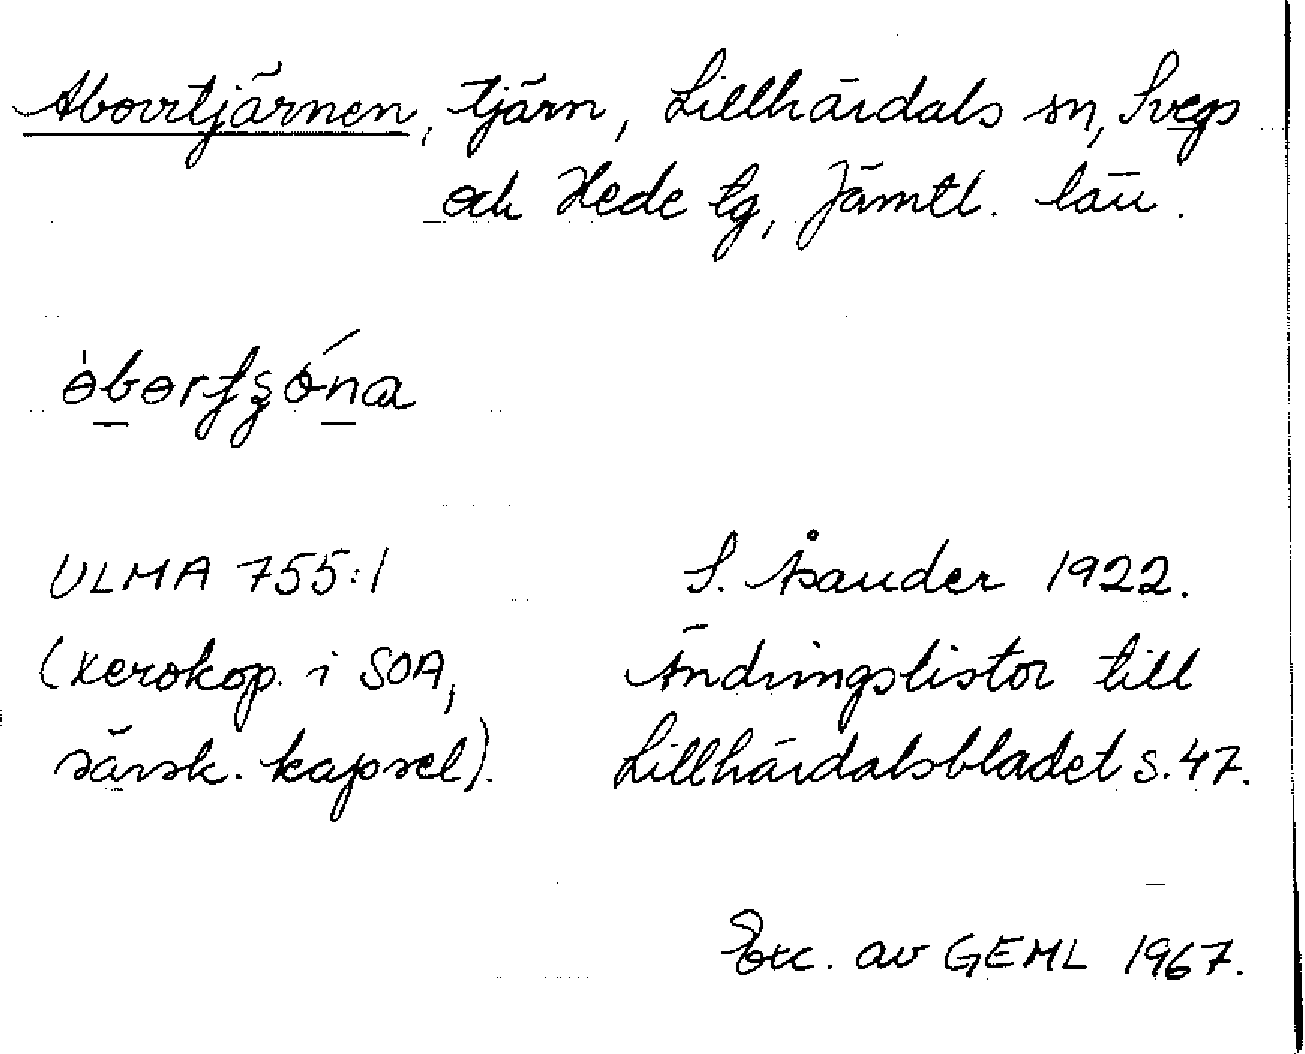 Abborrtjärnen, tjärn, Lillhärdals sn, Svegs
och Hede tg, Jämtl. län.
ULMA 755:1
(xerokop. i SOA,
särsk. kapsel).
S. Åsander 1922.
Ändringslistor till
Lillhärdalsbladet s. 47.
Exc. av GEML 1967.